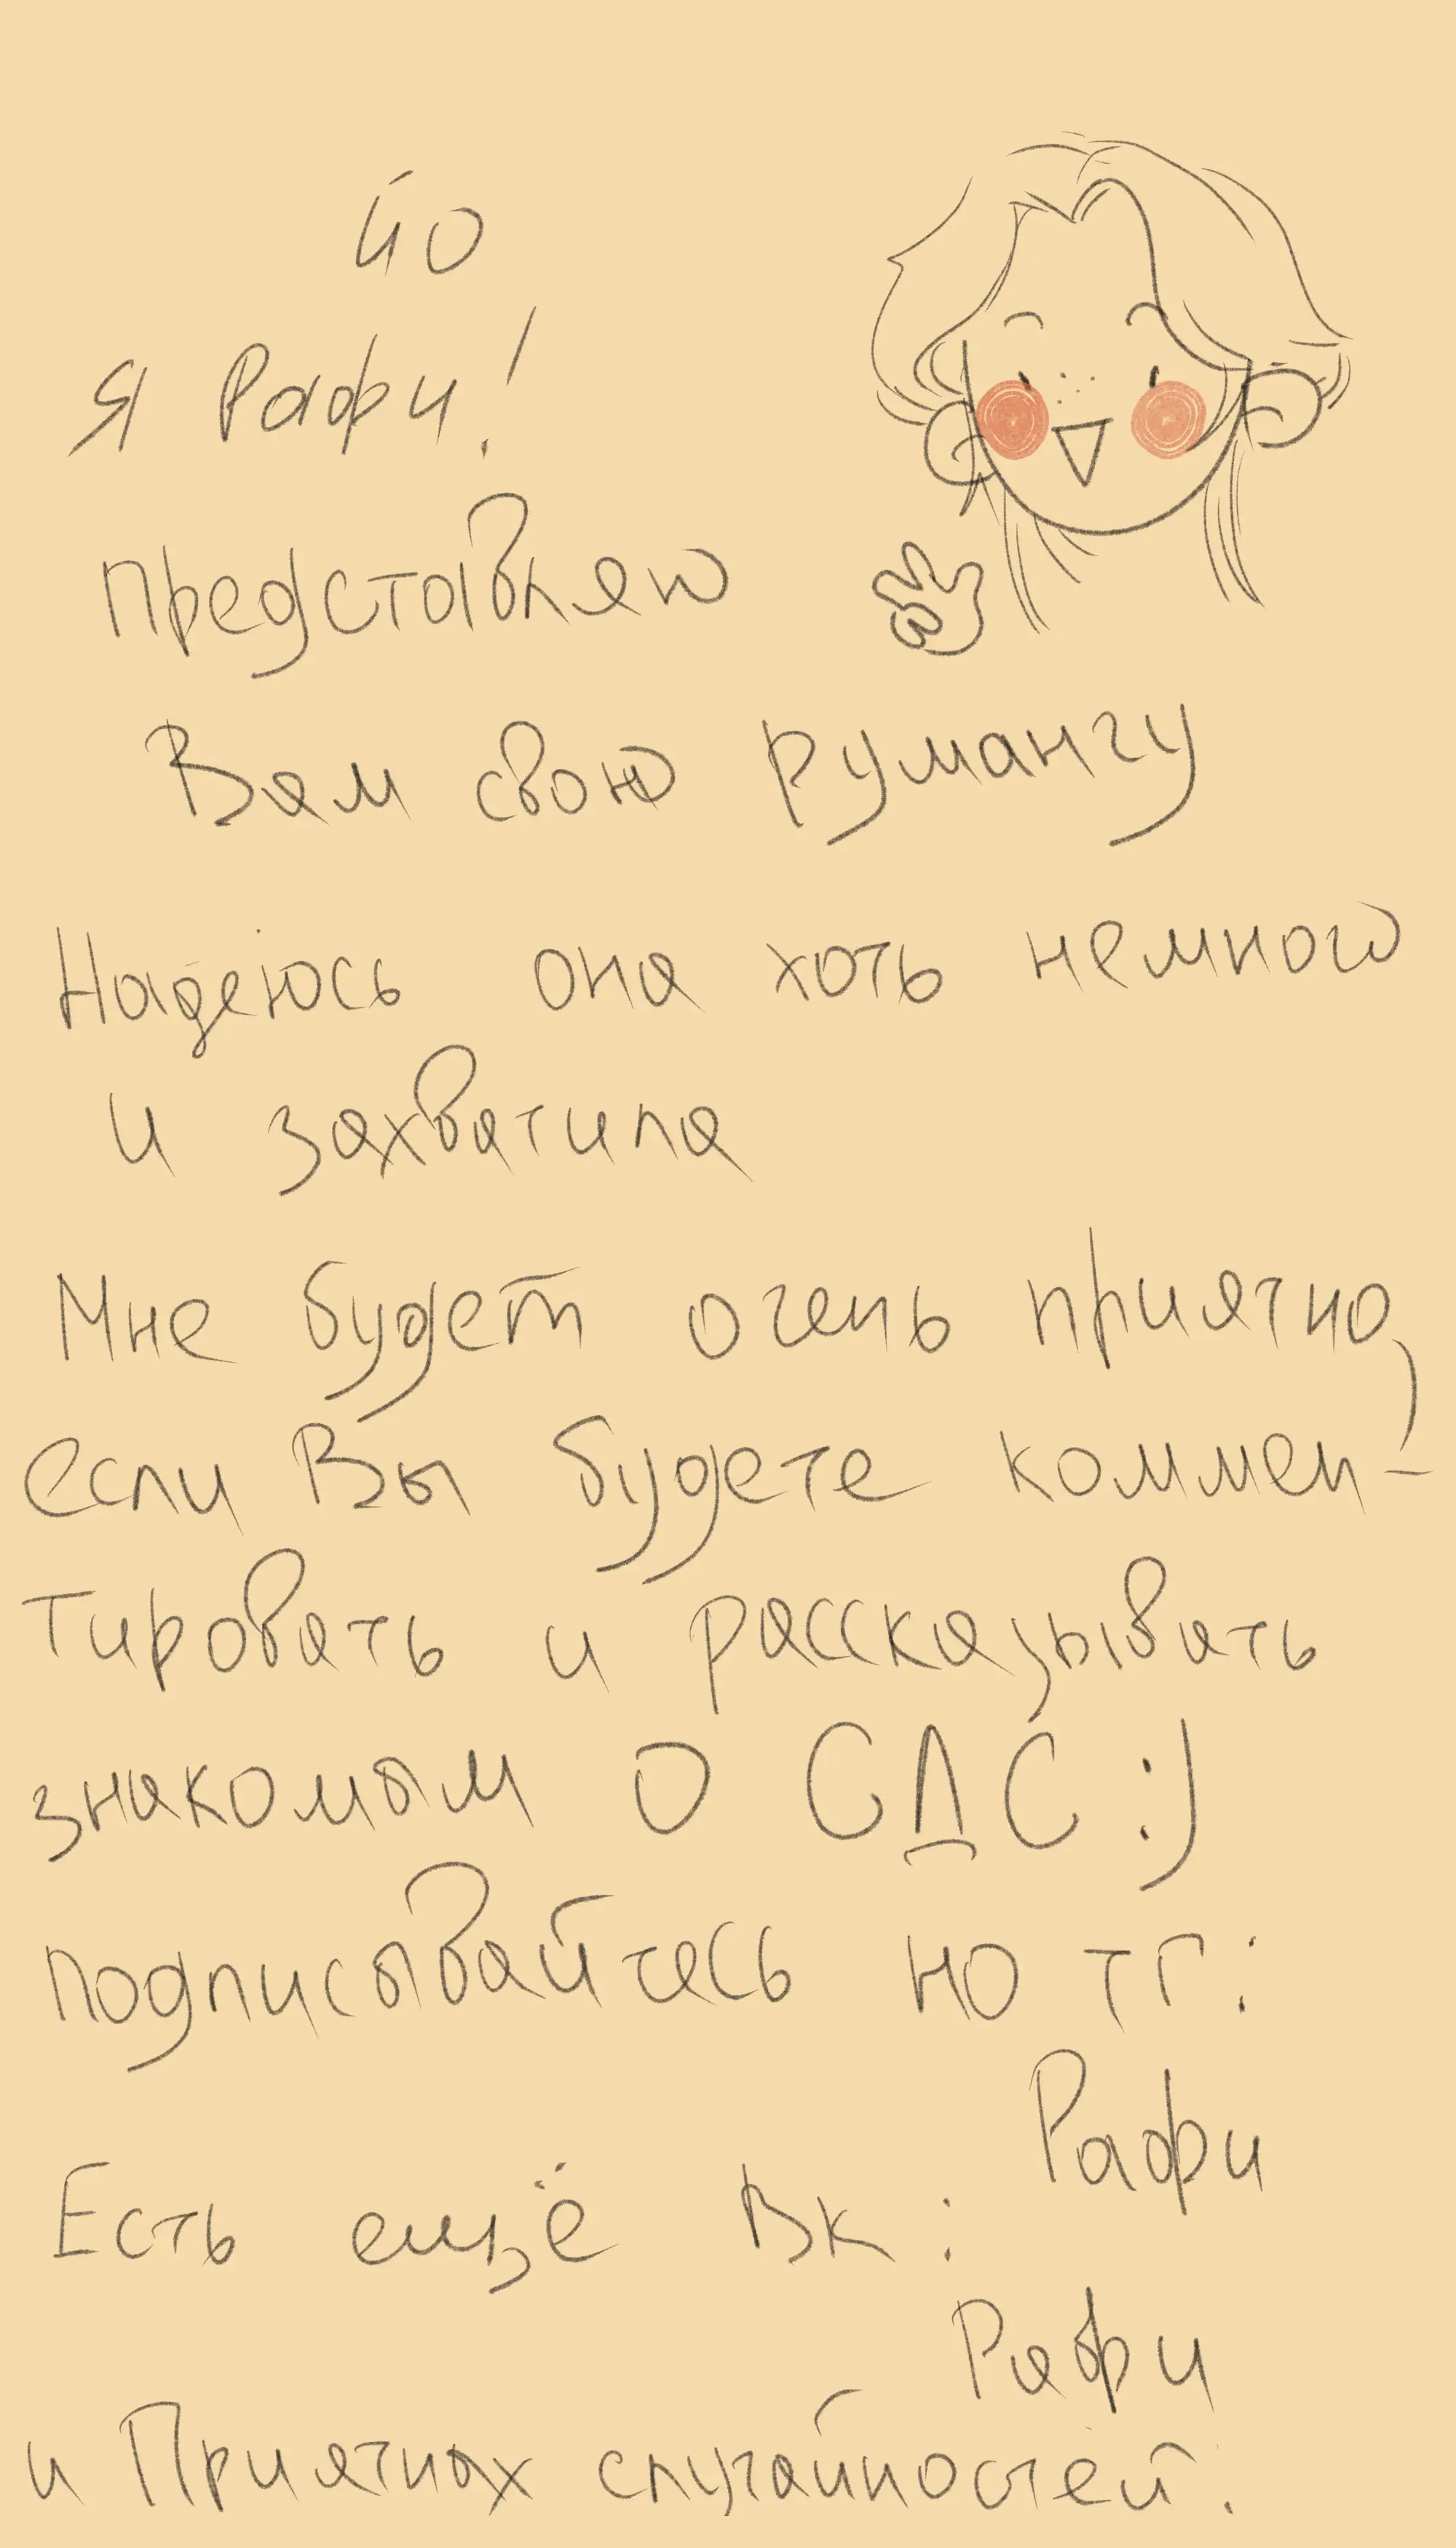 йо
Я Рафи!
представляю
Вам свою румангу
Надеюсь она хоть немного
и захватила
Мне будет очень приятно,
если Вы будете коммен-
тировать и рассказывать
знакомым о СДС :)
подписывайтесь на тг:
Рафи
Есть ещё Вк:
Рафи
и Приятных случайностей.